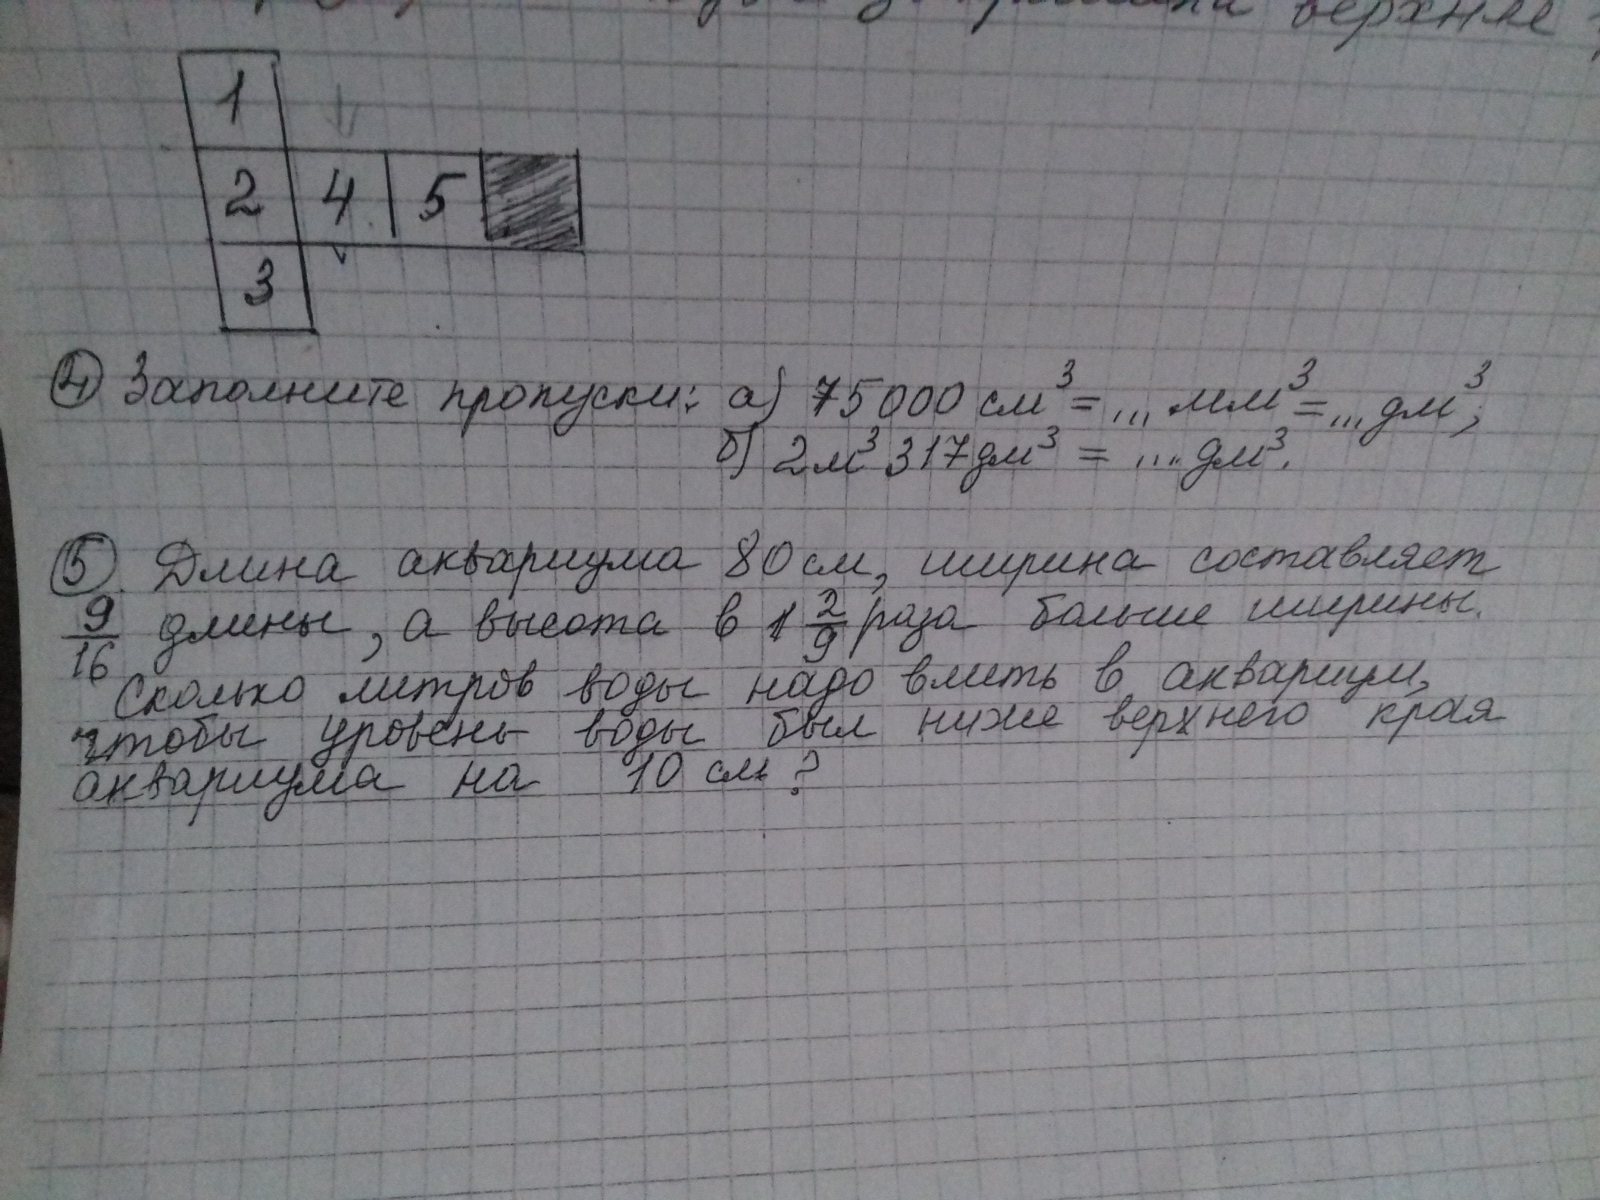 верхняя
1
2 4 5
3
4 Заполните пропуски: а) 75000 см³ = ... мм³ = ... дм³;
б) 2м³ 317дм³ = ... дм³.
5. Длина аквариума 80 см, ширина составляет
9/16 длины, а высота в 1 2/9 раза больше ширины.
Сколько литров воды надо влить в аквариум,
чтобы уровень воды был ниже верхнего края
аквариума на 10 см?